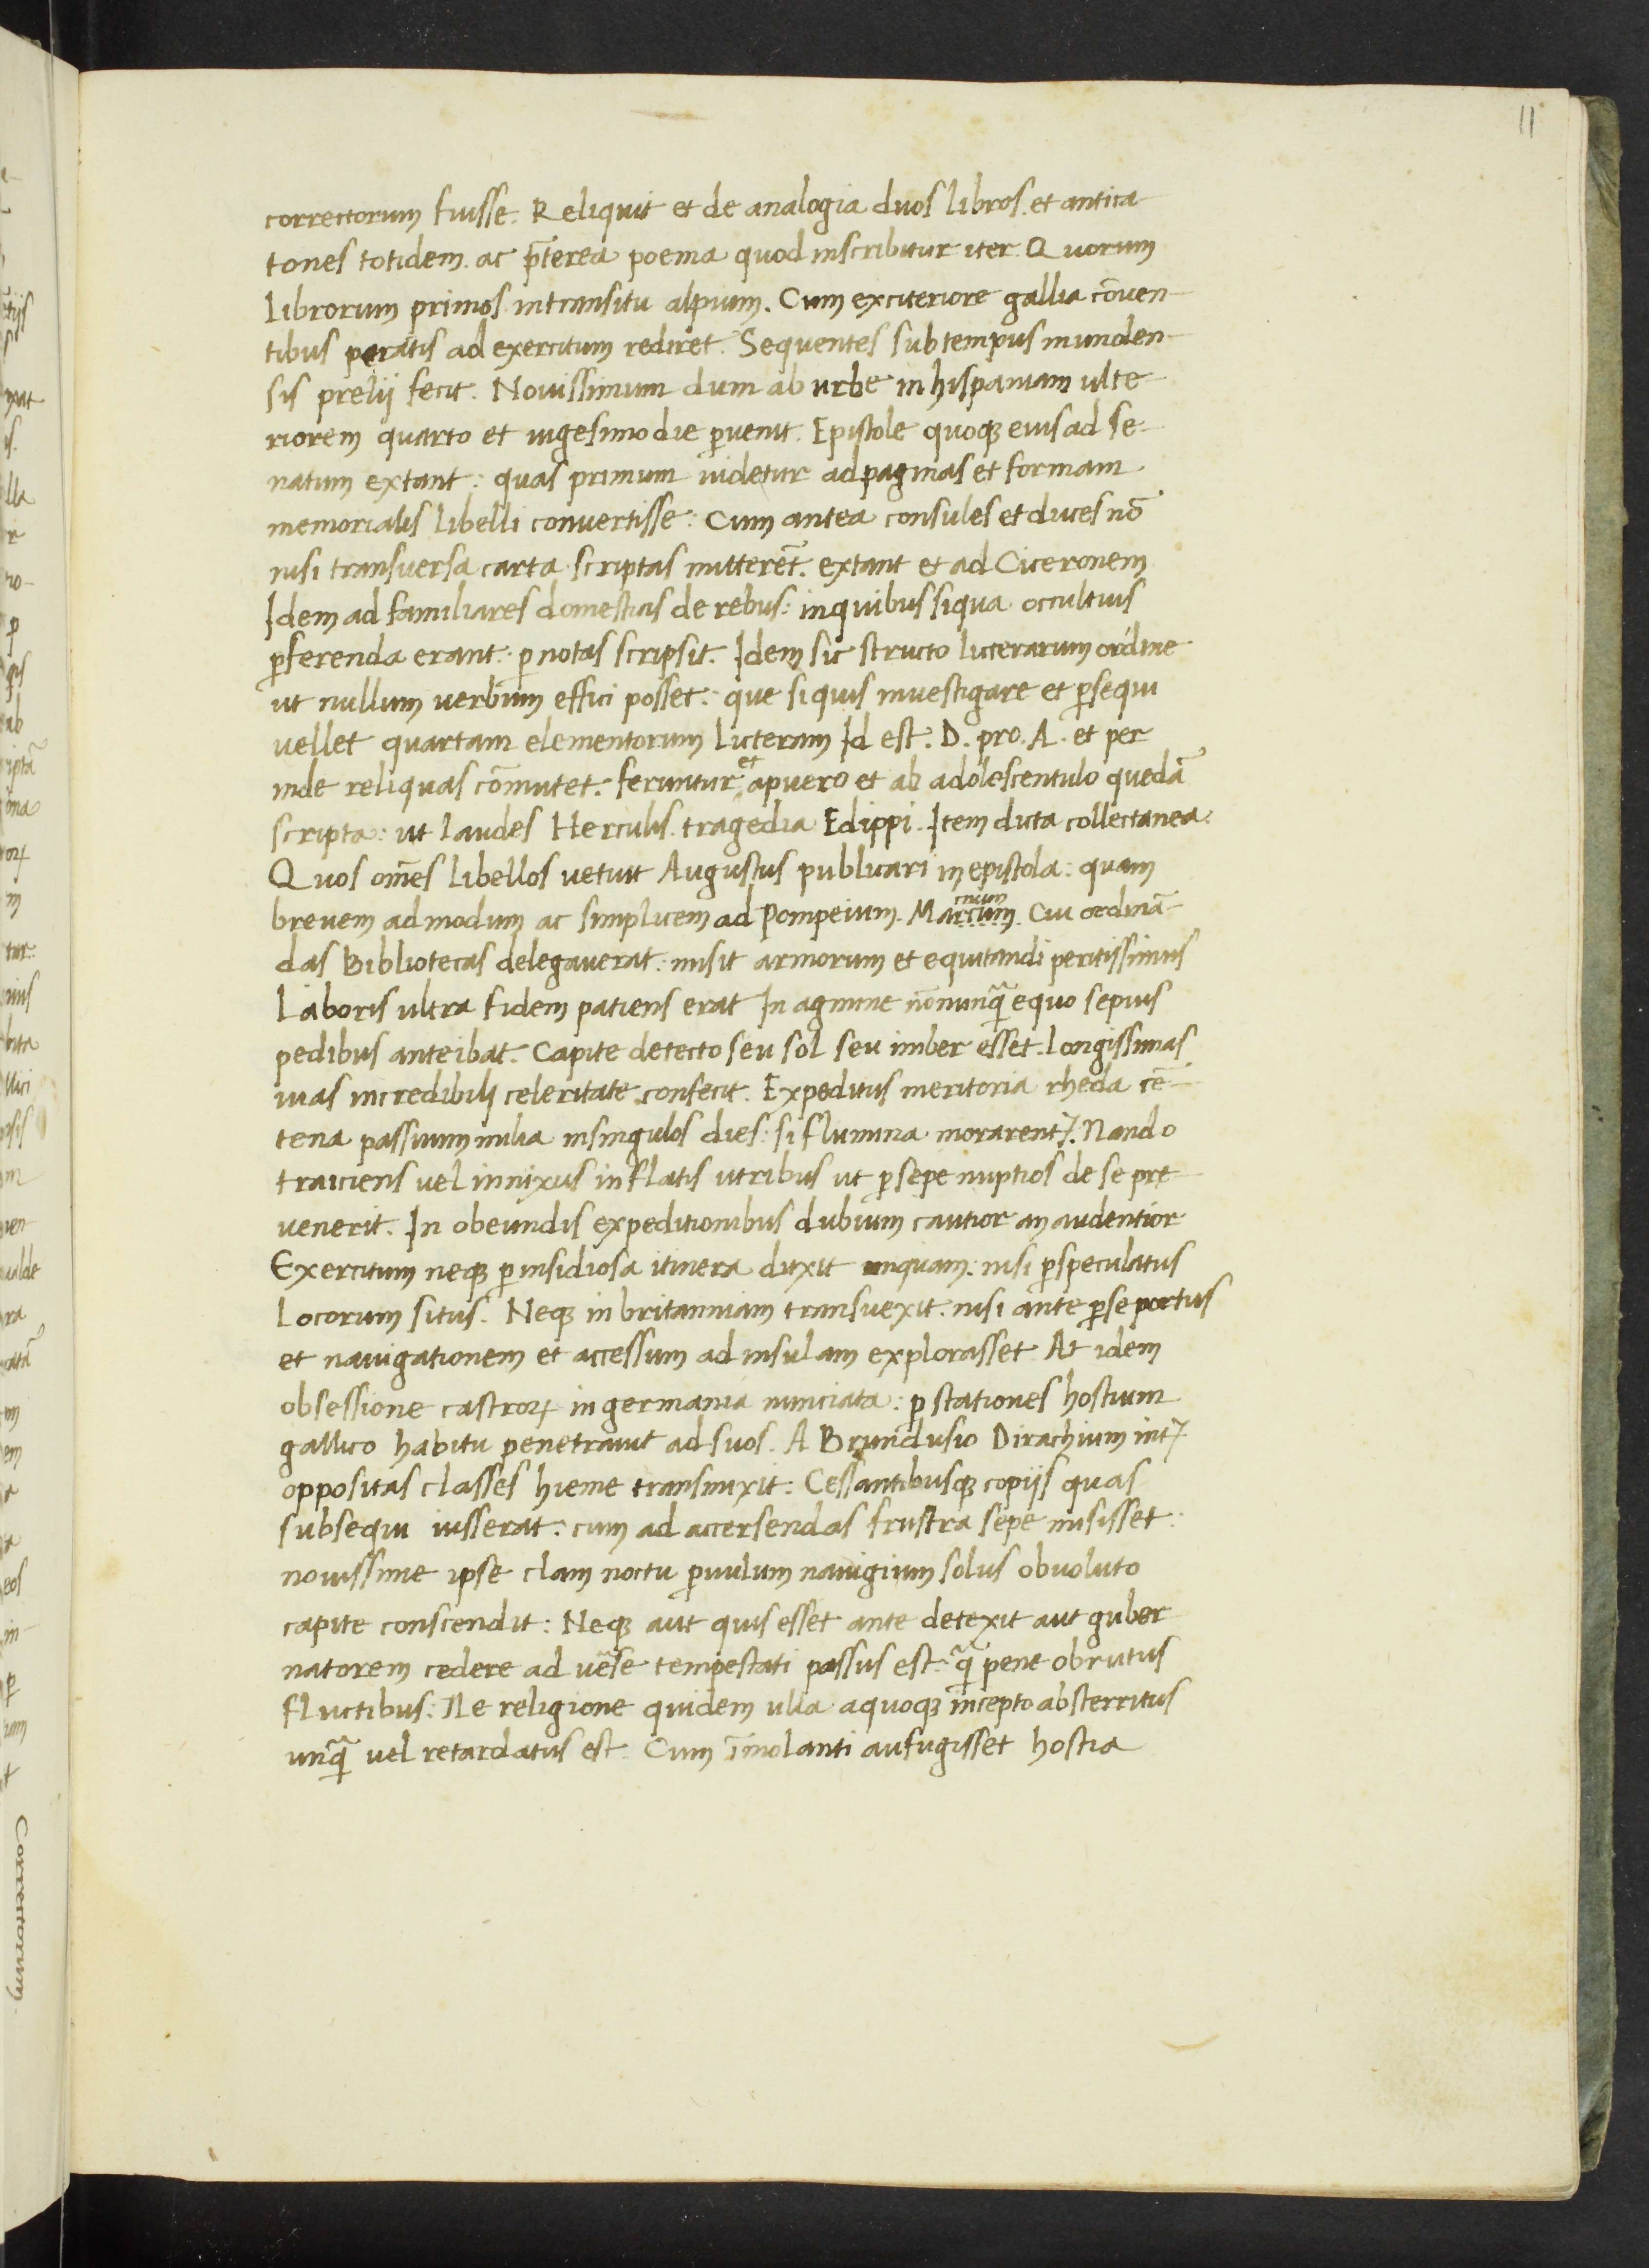 11
correctorum fuisse. Reliquit et de analogia duos libros. et antica-
tones totidem. ac p̄terea poema quod inscribitur iter. Quorum
librorum primos in transitu alpium. Cum ex citeriore gallia cōuen-
tibus peratis ad exercitum rediret. Sequentes sub tempus munden-
sis prelij fecit. Nouissimum dum ab urbe in hispaniam ulte-
riorem quarto et uigesimo die ꝑuenit. Epistole quoqꝫ eius ad se-
natum extant: quas primum uidetur ad paginas et formam
memorialis libelli convertisse: Cum antea consules et duces nō
nisi transuersa carta scriptas mitterēt. extant et ad Ciceronem
Idem ad familiares domesticas de rebus: in quibus siqua occultius
ꝑferenda erant: ꝑ notas scripsit. Idem sic structo litterarum ordine
ut nullum uerbum effici posset: que si quis inuestigare et ꝑsequi
uellet quartam elementorum litteram Id est. D. pro. A. et per
inde reliquas cōmutet. feruntur et a puero et ab adolescentulo quedā
scripta: ut laudes Herculis. tragedia Edippi. Item dicta collectanea.
Quos oēs libellos uetuit Augustus publicari in epistola: quam
brevem ad modum ac simplicem ad Pompeium. Marcum crum. Cui ordinā-
das Bibliotecas delegauerat: misit armorum et equitandi peritissimus
Laboris ultra fidem patiens erat In agmine nōnunq̄ equo sepius
pedibus anteibat. Capite detecto seu sol seu imber esset. longissimas
uias incredibili celeritate confecit. Expeditus meritoria rheda cē-
tena passuum milia in singulos dies: si flumina morarentꝛ. Nando
traiciens uel innixus inflatis utribus ut ꝑsepe nuptios de se pre-
uenerit. In obeundis expeditionibus dubium cautior an audentior
Exercitum neqꝫ ꝑ insidiosa itinera duxit unquam. nisi ꝑspeculatus
locorum situs. Neqꝫ in britanniam transuexit. nisi ante ꝑ se portus
et nauigationem et accessum ad insulam explorasset. At idem
obsessione castroꝝ in germania nunciata: ꝑ stationes hostium
gallico habitu penetrauit ad suos. A Brundusio Dirachium intꝛ
oppositas classes hieme transmixit: Cessantibusqꝫ copijs quas
subsequi iusserat: cum ad accersendas frustra sepe misisset:
nouissime ipse clam noctu ꝑuulum nauigium solus obuoluto
capite conscendit: Neqꝫ aut quis esset ante detexit aut guber
natorem cedere ad uēse tempestati passus est. q̄ pene obrutus
fluctibus: Ne religione quidem ulla a quoqꝫ incepto absterritus
unq̄ uel retardatus est. Cum īmolanti aufugisset hostia
Correctorum.